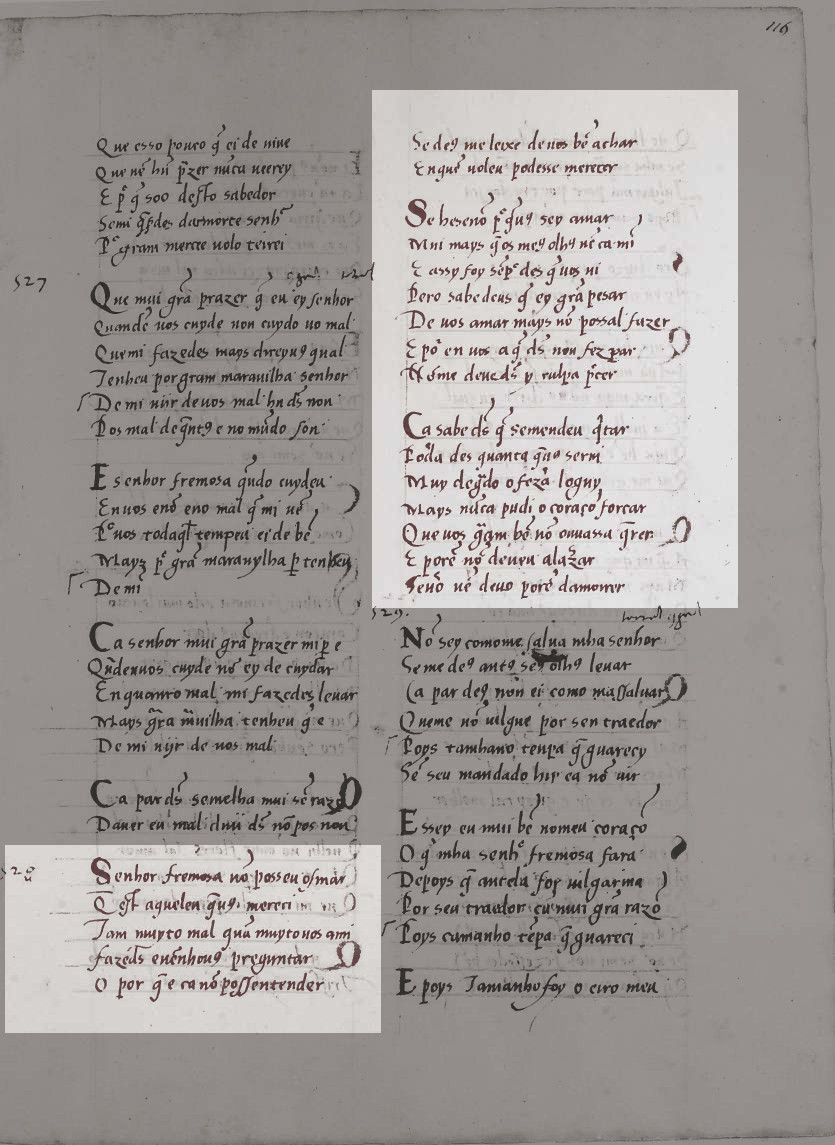 116
Que esso pouco q̃ ei de uiue
Que nẽ hũ p̃zer nũca ueerey
E p̃ q̃ soo desto sabedor
Semi q̃sdes dar morte senhʳ
Pᵒ gram merçee uolo teirei
527
Que mui grã prazer q̃ eu ey senhor
Quandẽ uos cuyde non cuydo uo mal
Quemi fazedes mays direyuꝯ qual
Tenheu por gram marauilha senhor
De mi uiir de uos mal hu ds̃ non
Pos mal de q̃ntꝯ e no mũdo son
E senhor fremosa q̃ndo cuydeu
En uos enõ eno mal q̃ mi uẽ
Pᵒ uos todaq̃l tempeu ei de bẽ
Mayz pʳ grã marauylha p̱ tenheu
De mi
Ca senhor mui grã prazer mi p̱ e
Qũdenuos cuyde nõ ey de cuydar
En quanto mal mi fazedes leuar
Mays grã m̃uilha tenheu q̃ e
De mi uijr de uos mal
Ca par ds̃ semelha mui sẽ razõ
Dauer eu mal duu ds̃ nõ pos non
528
Senhor fremosa nõ posseu osmar
Q̃ est aquelen q̃uꝯ mereci
Tam muyto mal quã muyto uos ami
fazeds̃ euẽnhouꝯ preguntar
O por q̃ e ca nõ possentender
Se deꝯ me leixe de uos bẽ achar
En que uoleu podesse merecer
Se he senõ pʳ q̃uꝯ sey amar
Mui mays q̃ os meꝯ olhꝯ nẽ ca mi
E assy foy sẽpʳ des q̃ uos ui
Pero sabe deus q̃ ey grã pesar
De uos amar mays nõ possal fazer
E põr en uos a q̃ ds̃ non fez par
Nõ me deueds̃ y culpa põer
Ca sabe ds̃ q̃ semendeu q̃tar
Podꝰa des quanta q̃uꝯ serui
Muy degᵃdo o fezꝰa loguy
Mays nũca pudi o coraçõ forçar
Que uos gᵃm bẽ nõ ouuessa q̃rer
E porẽ nõ deueu alazerar
Senõ nẽ deuo porẽ damorrer
529
Nõ sey comome salua mha senhor
Se me deꝯ antꝯ seꝯ olhꝯ leuar
Ca par deꝯ non ei como massaluar
Queme nõ uilgue por sen traedor
Poys tamhano tenpa q̃ guarecy
Sẽ seu mandado hir ea nõ uir
E ssey eu mui bẽ nomeu coraçõ
O q̃ mha senhʳ fremosa fara
Depoys q̃ antela foy uilgarma
Por seu traedor cũ mui grã razõ
Poys camanho tẽpa q̃ guareci
E poys Tamanho foy o erro meu